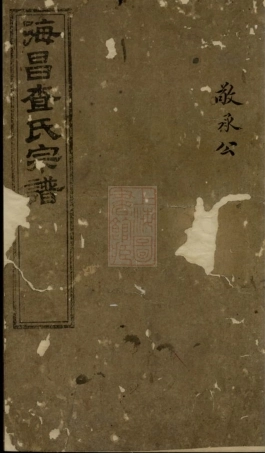 敬承公
海昌查氏宗譜